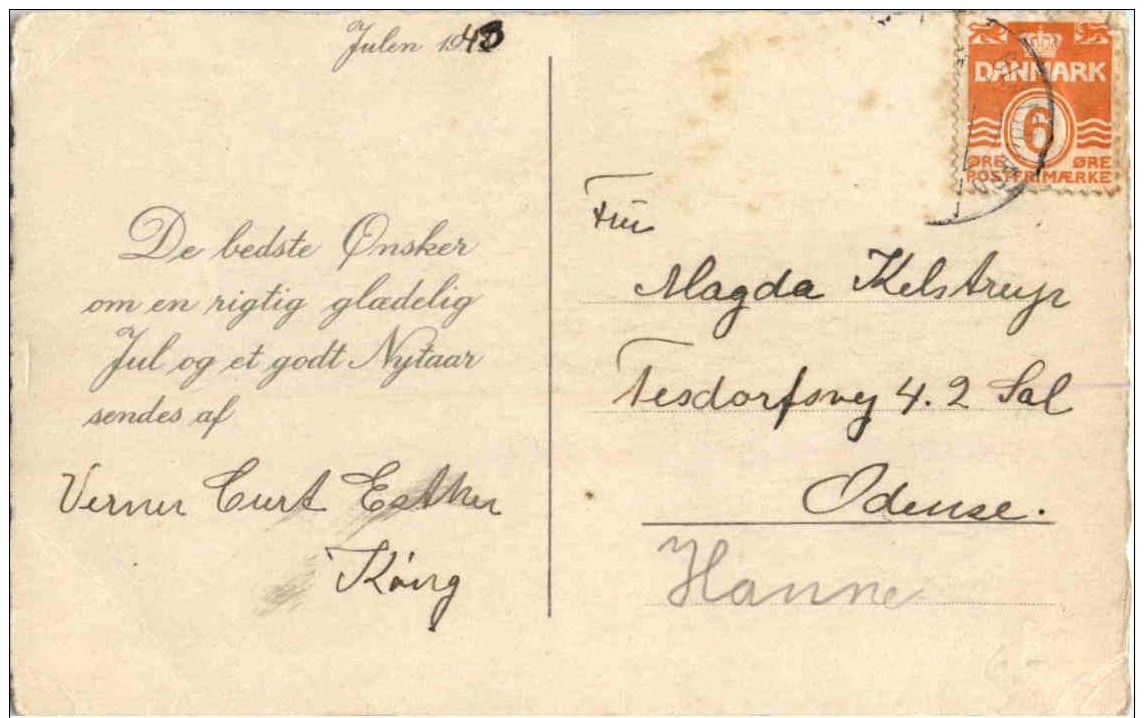 Julen 1943
De bedste Ønsker
om en rigtig glædelig
Jul og et godt Nytaar
sendes af
Verner Curt Esther
Køng
DANMARK
6
ØRE ØRE
POSTFRIMÆRKE
Fru
Magda Kelstrup
Tesdorfsvej 4. 2 Sal
Odense.
Hanne